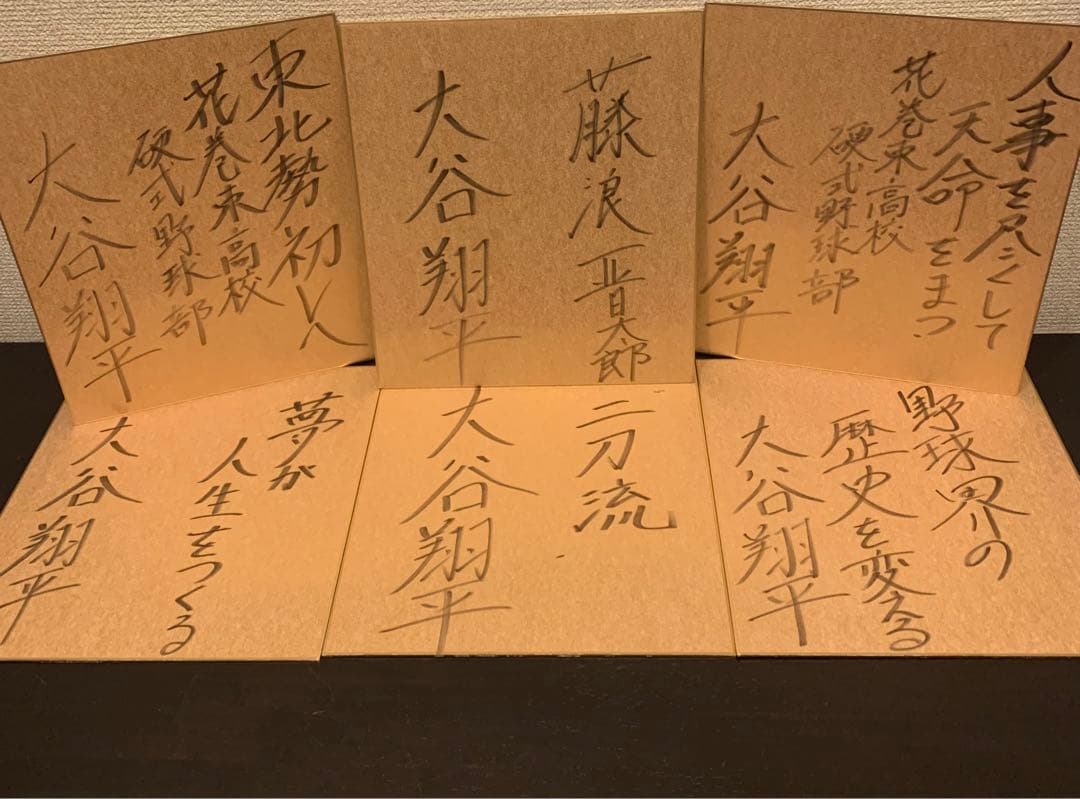 東北勢初と
花巻東高校
硬式野球部
大谷翔平
藤浪晋太郎
大谷翔平
人事を尽くして
天命をまつ
花巻東高校
硬式野球部
大谷翔平
夢が
人生をつくる
大谷翔平
二刀流
大谷翔平
野球界の
歴史を変える
大谷翔平